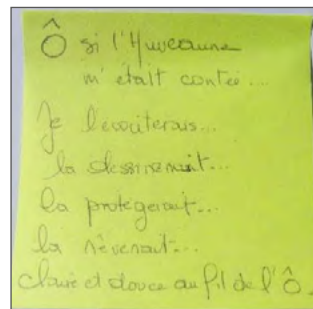 Ô si l'Huveaune
m'était contée....
Je l'écouterais...
la dessinerait...
la protégerait...
la rêverait...
claire et douce au fil de l'Ô.